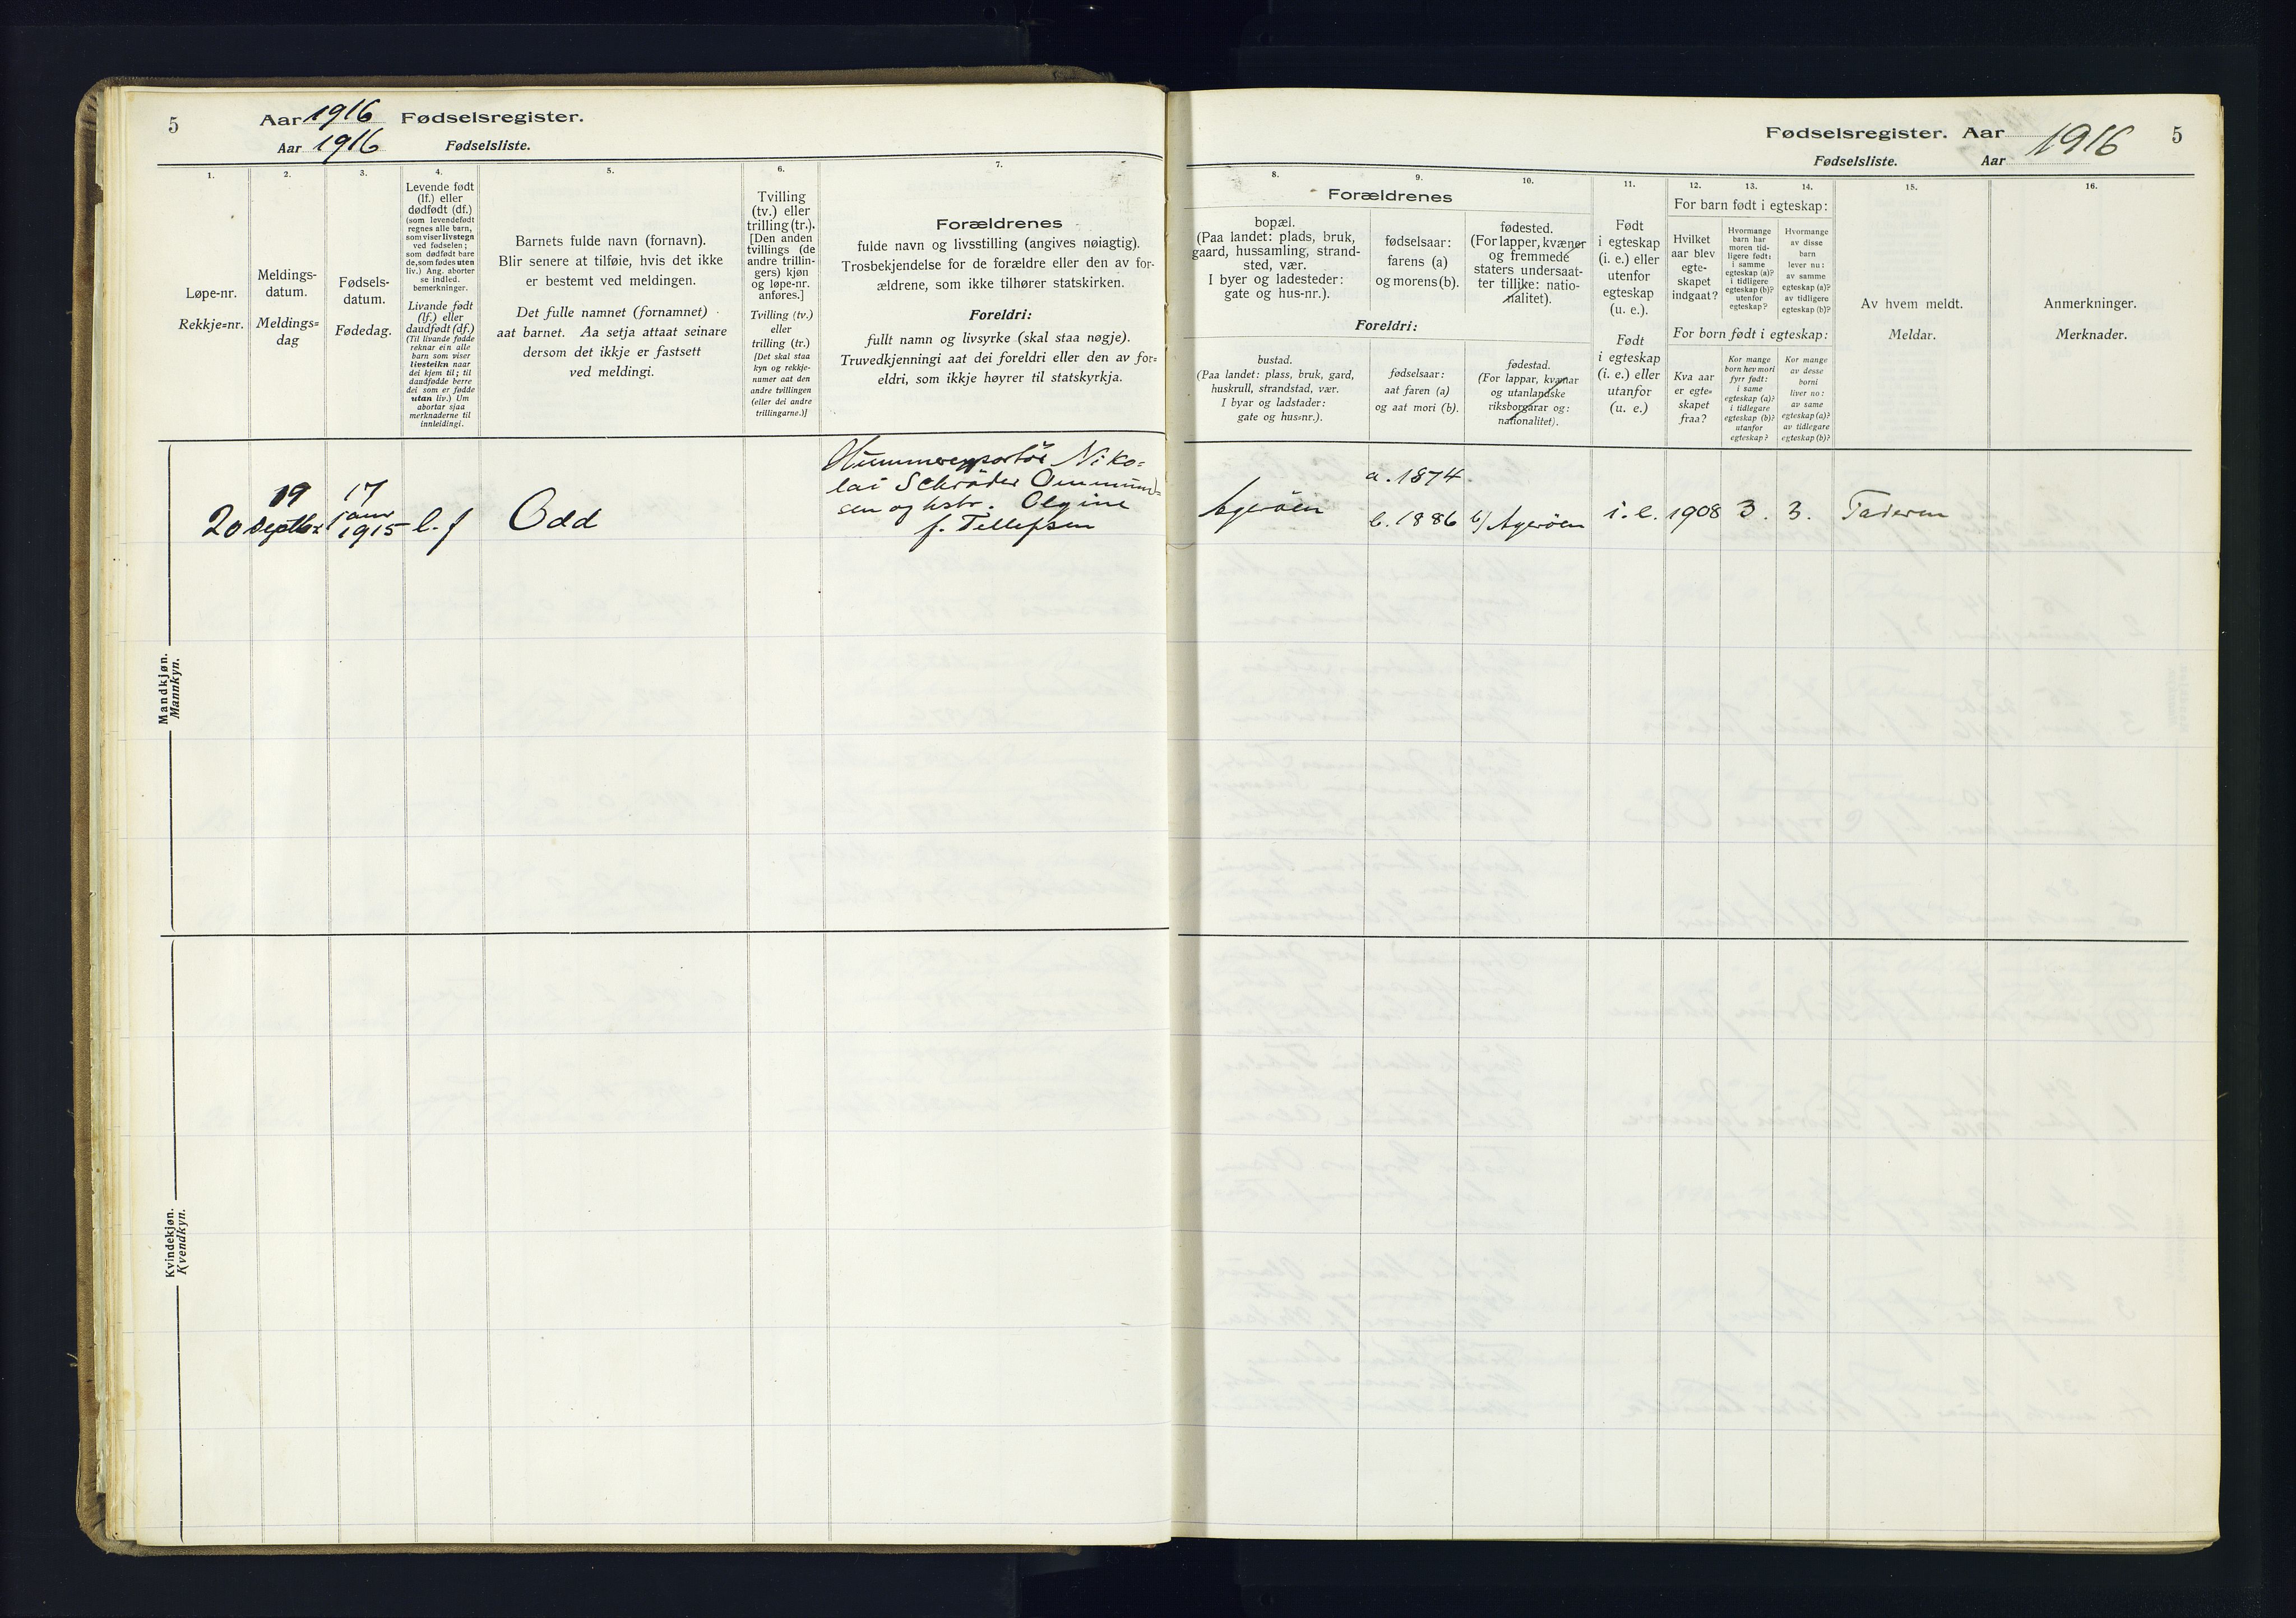 5
Aar 1916 Fødselsregister.
Aar 1916 Fødselsliste.
1.
Løpe-nr.
Rekkje=nr.
2.
Meldings-
datum.
Meldings=
dag
3.
Fødsels-
datum.
Fødedag.
4.
Levende født
(lf.) eller
dødfødt (df.)
(som levendefødt
regnes alle barn,
som viser livstegn
ved fødselen;
som dødfødt bare
de, som fødes uten
liv.) Ang. aborter
se indled.
bemerkninger.
Livande født
(lf.) eller
daudfødt (df.)
(Til livande fødde
reknar ein alle
barn som viser
livsteikn naar
dei kjem til; til
daudfødde berre
dei som er fødde
utan liv.) Um
abortar sjaa
merknaderne til
innleidingi.
5.
Barnets fulde navn (fornavn).
Blir senere at tilføie, hvis det ikke
er bestemt ved meldingen.
Det fulle namnet (fornamnet)
aat barnet. Aa setja attaat seinare
dersom det ikkje er fastsett
ved meldingi.
6.
Tvilling
(tv.) eller
trilling (tr.).
[Den anden
tvillings (de
andre trillin-
gers) kjøn
og løpe-nr.
anføres.]
Tvilling (tv.)
eller
trilling (tr.)
[Det skal staa
kyn og rekkje-
numer aat den
andre tvillingen
(eller dei andre
trillingarne.)]
7.
Forældrenes
fulde navn og livsstilling (angives nøiagtig).
Trosbekjendelse for de forældre eller den av for-
ældrene, som ikke tilhører statskirken.
Foreldri:
fullt namn og livsyrke (skal staa nøgje).
Truvedkjenningi aat dei foreldri eller den av for=
eldri, som ikkje høyrer til statskyrkja.
Mandkjøn.
Mannkyn.
20
19
Septbr
17
janr
1915
l. f
Odd
Hummerexportör Niko=
lai Schröder Ommund=
sen og hstr. Olgine
f. Tellefsen
Kvindekjøn.
Kvendkyn.
Fødselsregister. Aar 1916 5
Fødselsliste. Aar
8.
Forældrenes
bopæl.
(Paa landet: plads, bruk,
gaard, hussamling, strand-
sted, vær.
I byer og ladesteder:
gate og hus-nr.).
Foreldri:
bustad.
(Paa landet: plass, bruk, gard,
huskrull, strandstad, vær.
I byar og ladstader:
gate og hus=nr.).
9.
fødselsaar:
farens (a)
og morens (b).
fødselsaar:
aat faren (a)
og aat mori (b).
10.
fødested.
(For lapper, kvæner
og fremmede
staters undersaat-
ter tillike: natio-
nalitet).
fødestad.
(For lappar, kvænar
og utanlandske
riksborgarar og:
nationalitet).
11.
Født
i egteskap
(i. e.) eller
utenfor
egteskap
(u. e.).
Født
i egteskap
(i. e.) eller
utanfor
(u. e.)
12.
13.
14.
For barn født i egteskap:
Hvilket
aar blev
egte-
skapet
indgaat?
Hvormange
barn har
moren tid-
ligere født:
i samme
egteskap (a)?
i tidligere
egteskap (b)?
utenfor
egteskap?
Hvormange
av disse
barn
lever nu:
av samme
egteskap (a)?
av tidligere
egteskap (b)?
For born født i egteskap:
Kva aar
er egte=
skapet
fraa?
Kor mange
born hev mori
fyrr født:
i same
egteskap (a)?
i tidlegare
egteskap (b)?
utanfor
egteskap?
Kor mange
av desse
borni
liver no:
av same
egteskap (a)?
av tidlegare
egteskap (b)?
15.
Av hvem meldt.
Meldar.
16.
Anmerkninger.
Merknader.
Ageröen
a. 1874.
b. 1886
b) Ageröen
i. e.
1908
3.
3.
Faderen